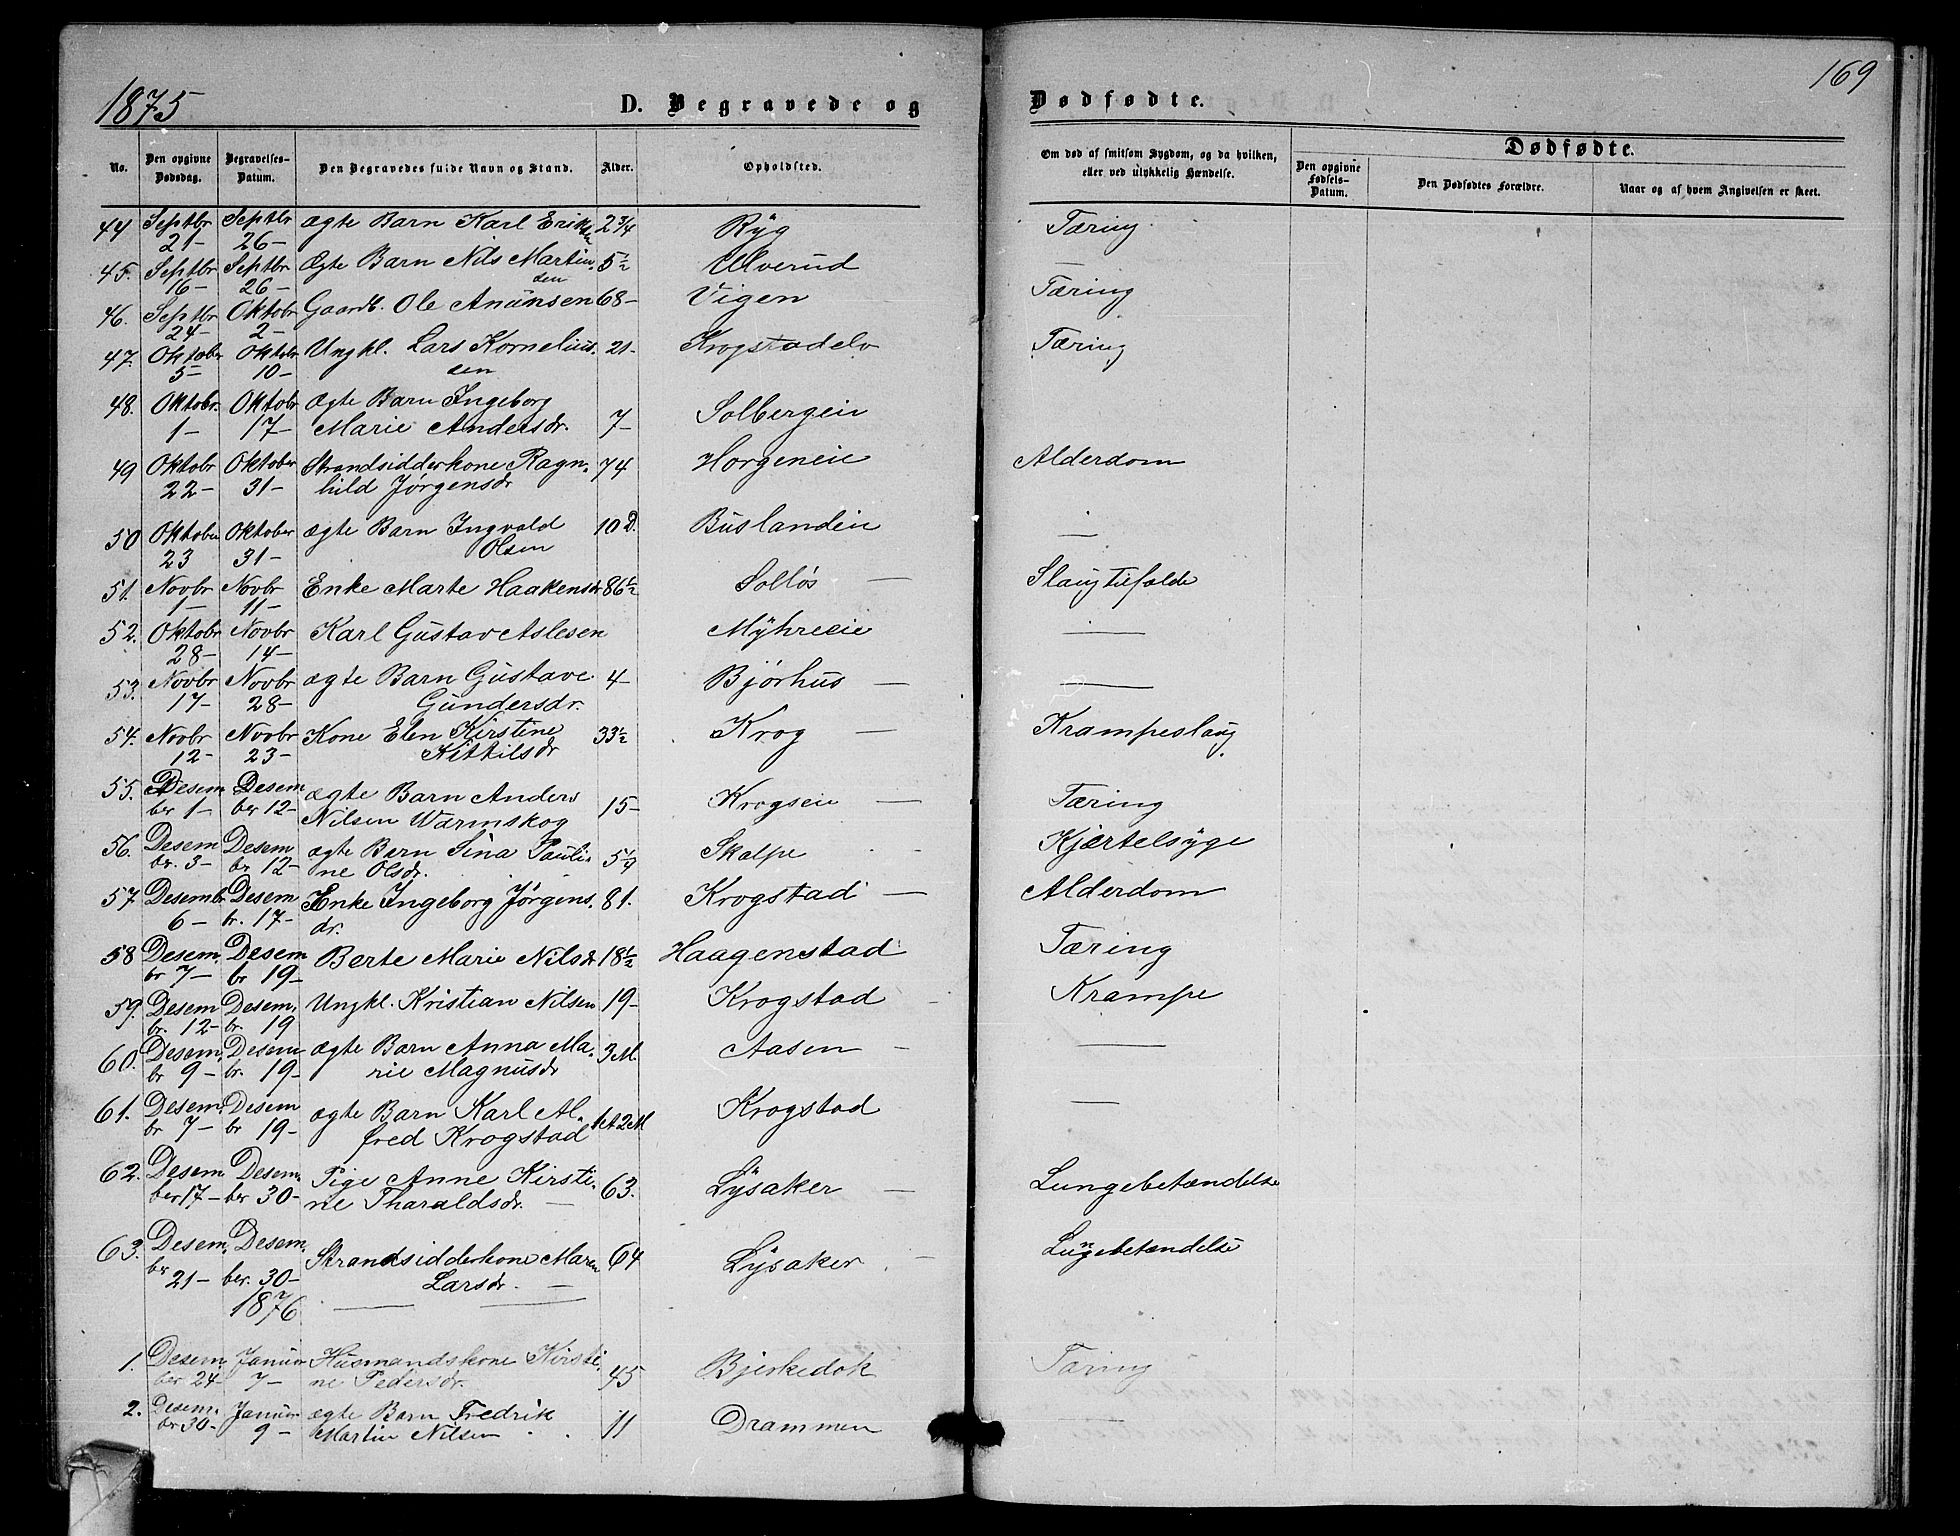 1875 D. Begravede og Dødfødte. 169
No. Den opgivne Dødsdag. Begravelses-Datum. Den Begravedes fulde Navn og Stand. Alder. Opholdsted. Om død af smitsom Sygdom, og da hvilken, eller ved ulykkelig Hændelse. Dødfødte.
Den opgivne Fødsels-Datum. Den Dødfødtes Forældre. Naar og af hvem Angivelsen er skeet.
44 Septbr 21- Septbr 26- ægte Barn Karl Eriksen 2 3/4 Ryg Tæring
45. Septbr 16- Septbr 26- Ægte Barn Nils Martinsen 5 1/2 Ulverud Tæring
46. Septbr 24- Oktobr 2- Gaardb. Ole Anunsen 68- Vigen Tæring
47. Oktober 5- Oktobr 10- Ungkl. Lars Korneliussen 21- Krogstadelv Tæring
48. Oktobr. 1- Oktobr 17- ægte Barn Ingeborg
Marie Andersdr. 7- Solbergein
49 Oktobr 22- Oktober 31- Strandsidderkone Ragn-
hild Jørgensdr 74 Horgeneie Alderdom
50 Oktober 23 Oktober 31- ægte Barn Ingvald
Olsen 10 D. Buslandein —
51. Novbr 1- Novbr 11- Enke Marte Haakensdr 86 1/2 Solløs — Slaugtilfælde
52. Oktobr 28- Novbr 14- Karl Gustav Aslesen Myhreeie —
53. Novbr 17- Novbr 28- ægte Barn Gustave
Gundersdr. 4- Bjørhus — —
54. Novbr 12- Novbr 23- Kone Elen Kirstine
Kittilsdr 33 1/2 Krog — Krampeslag.
55. Desember 1- Desember 12- ægte Barn Anders
Nilsen Warmskog 15- Krogseie — Tæring
56. Desembr. 3- Desembr 12- ægte Barn Sina Pauli-
ne Olsdr. Skalpe Kjærtelsyge
57 Desembr 6- Desembr. 17- Enke Ingeborg Jørgens.
dr. 81. Krogstad — Alderdom
58 Desembr 7- Desembr 19- Berte Marie Nilsdr 18 1/2 Haagenstad Tæring
59. Desembr. 12- Desembr. 19 Ungkl. Kristian Nilsen 19- Krogstad Krampe
60. Desembr 9- Desembr. 19- ægte Barn Anna Ma-
rie Magnusdr 3 M. Aasen —
61. Desembr 7- Desembr 19- ægte Barn Karl Al-
fred Krogstad 1 A 2 M Krogstad —
62. Desember 17- Desember 30- Pige Anne Kirsti-
ne Tharaldsdr. — 63. Lysaker — Lungebetændelse
63. Desember 21- Desember. 30- Strandsidderkone Maren
Larsdr. — 64 Lysaker Lungebetændelse
1876
1. Desember 24- Januar 7- Husmandskone Kirsti-
ne Pedersdr. 45 Bjerkedok Tæring
2. Desember 30- Januar 9- ægte Barn Fredrik
Martin Nilsen 11 Drammen —